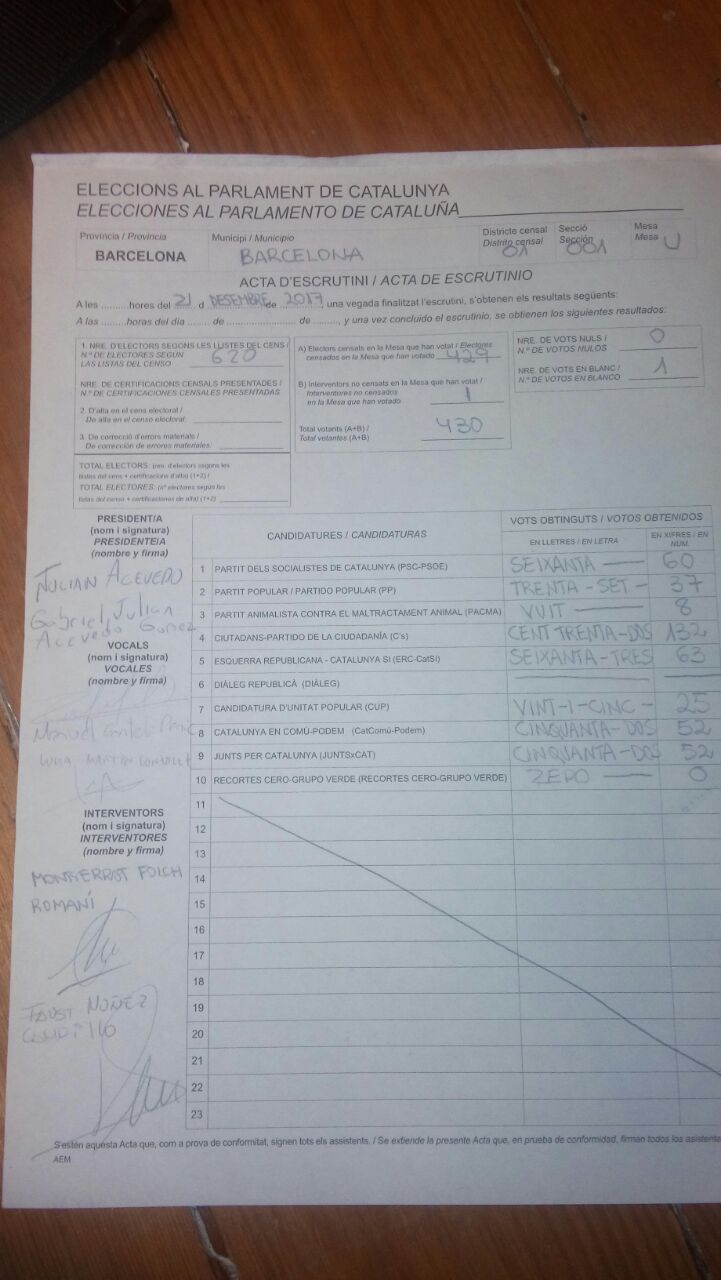 ELECCIONS AL PARLAMENT DE CATALUNYA
ELECCIONES AL PARLAMENTO DE CATALUÑA
Província / Provincia
BARCELONA
Municipi / Municipio
BARCELONA
Districte censal
Distrito censal
01
Secció
Sección
001
Mesa
Mesa U
ACTA D'ESCRUTINI / ACTA DE ESCRUTINIO
A les .........hores del 21 d DESEMBRE de 2017, una vegada finalitzat l'escrutini, s'obtenen els resultats següents:
A las .........horas del día ...... de ........................ de ........., y una vez concluido el escrutinio, se obtienen los siguientes resultados:
1. NRE. D'ELECTORS SEGONS LES LLISTES DEL CENS /
N.º DE ELECTORES SEGÚN
LAS LISTAS DEL CENSO 620
NRE. DE CERTIFICACIONS CENSALS PRESENTADES /
N.º DE CERTIFICACIONES CENSALES PRESENTADAS
2. D'alta en el cens electoral /
De alta en el censo electoral:
3. De correcció d'errors materials /
De corrección de errores materiales:
TOTAL ELECTORS: (nre. d'electors segons les
llistes del cens + certificacions d'alta) (1+2) /
TOTAL ELECTORES: (nº electores según las
listas del censo + certificaciones de alta) (1+2)
A) Electors censats en la Mesa que han votat / Electores
censados en la Mesa que han votado 429
B) Interventors no censats en la Mesa que han votat /
Interventores no censados
en la Mesa que han votado 1
Total votants (A+B) /
Total votantes (A+B) 430
NRE. DE VOTS NULS /
N.º DE VOTOS NULOS 0
NRE. DE VOTS EN BLANC /
N.º DE VOTOS EN BLANCO 1
PRESIDENT/A
(nom i signatura)
PRESIDENTE/A
(nombre y firma)
JULIAN ACEVEDO
Gabriel Julian
Acevedo Gomez
VOCALS
(nom i signatura)
VOCALES
(nombre y firma)
Manuel
MARTIN
INTERVENTORS
(nom i signatura)
INTERVENTORES
(nombre y firma)
MONTSERRAT FOLCH
ROMANÍ
FAUST NUÑEZ
CANDIDATURES / CANDIDATURAS
VOTS OBTINGUTS / VOTOS OBTENIDOS
EN LLETRES / EN LETRA
EN XIFRES / EN NÚM.
1 PARTIT DELS SOCIALISTES DE CATALUNYA (PSC-PSOE) SEIXANTA 60
2 PARTIT POPULAR / PARTIDO POPULAR (PP) TRENTA-SET 37
3 PARTIT ANIMALISTA CONTRA EL MALTRACTAMENT ANIMAL (PACMA) VUIT 8
4 CIUTADANS-PARTIDO DE LA CIUDADANÍA (C's) CENT TRENTA-DOS 132
5 ESQUERRA REPUBLICANA - CATALUNYA SI (ERC-CatSí) SEIXANTA-TRES 63
6 DIÀLEG REPUBLICÀ (DIÀLEG)
7 CANDIDATURA D'UNITAT POPULAR (CUP) VINT-I-CINC 25
8 CATALUNYA EN COMÚ-PODEM (CatComú-Podem) CINQUANTA-DOS 52
9 JUNTS PER CATALUNYA (JUNTSxCAT) CINQUANTA-DOS 52
10 RECORTES CERO-GRUPO VERDE (RECORTES CERO-GRUPO VERDE) ZERO 0
11
12
13
14
15
16
17
18
19
20
21
22
23
S'estén aquesta Acta que, com a prova de conformitat, signen tots els assistents. / Se extiende la presente Acta que, en prueba de conformidad, firman todos los
AEM